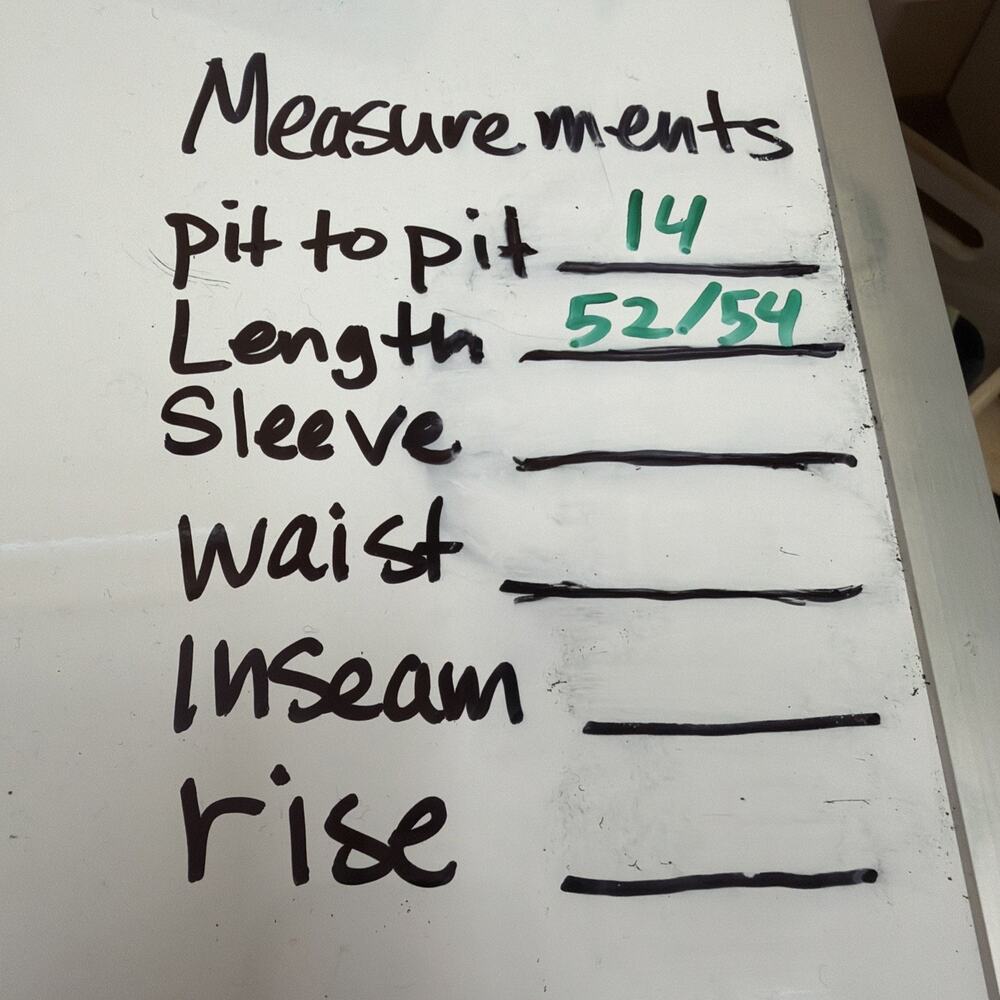 Measurements
pit to pit 14
Length 52/54
Sleeve
waist
Inseam
rise